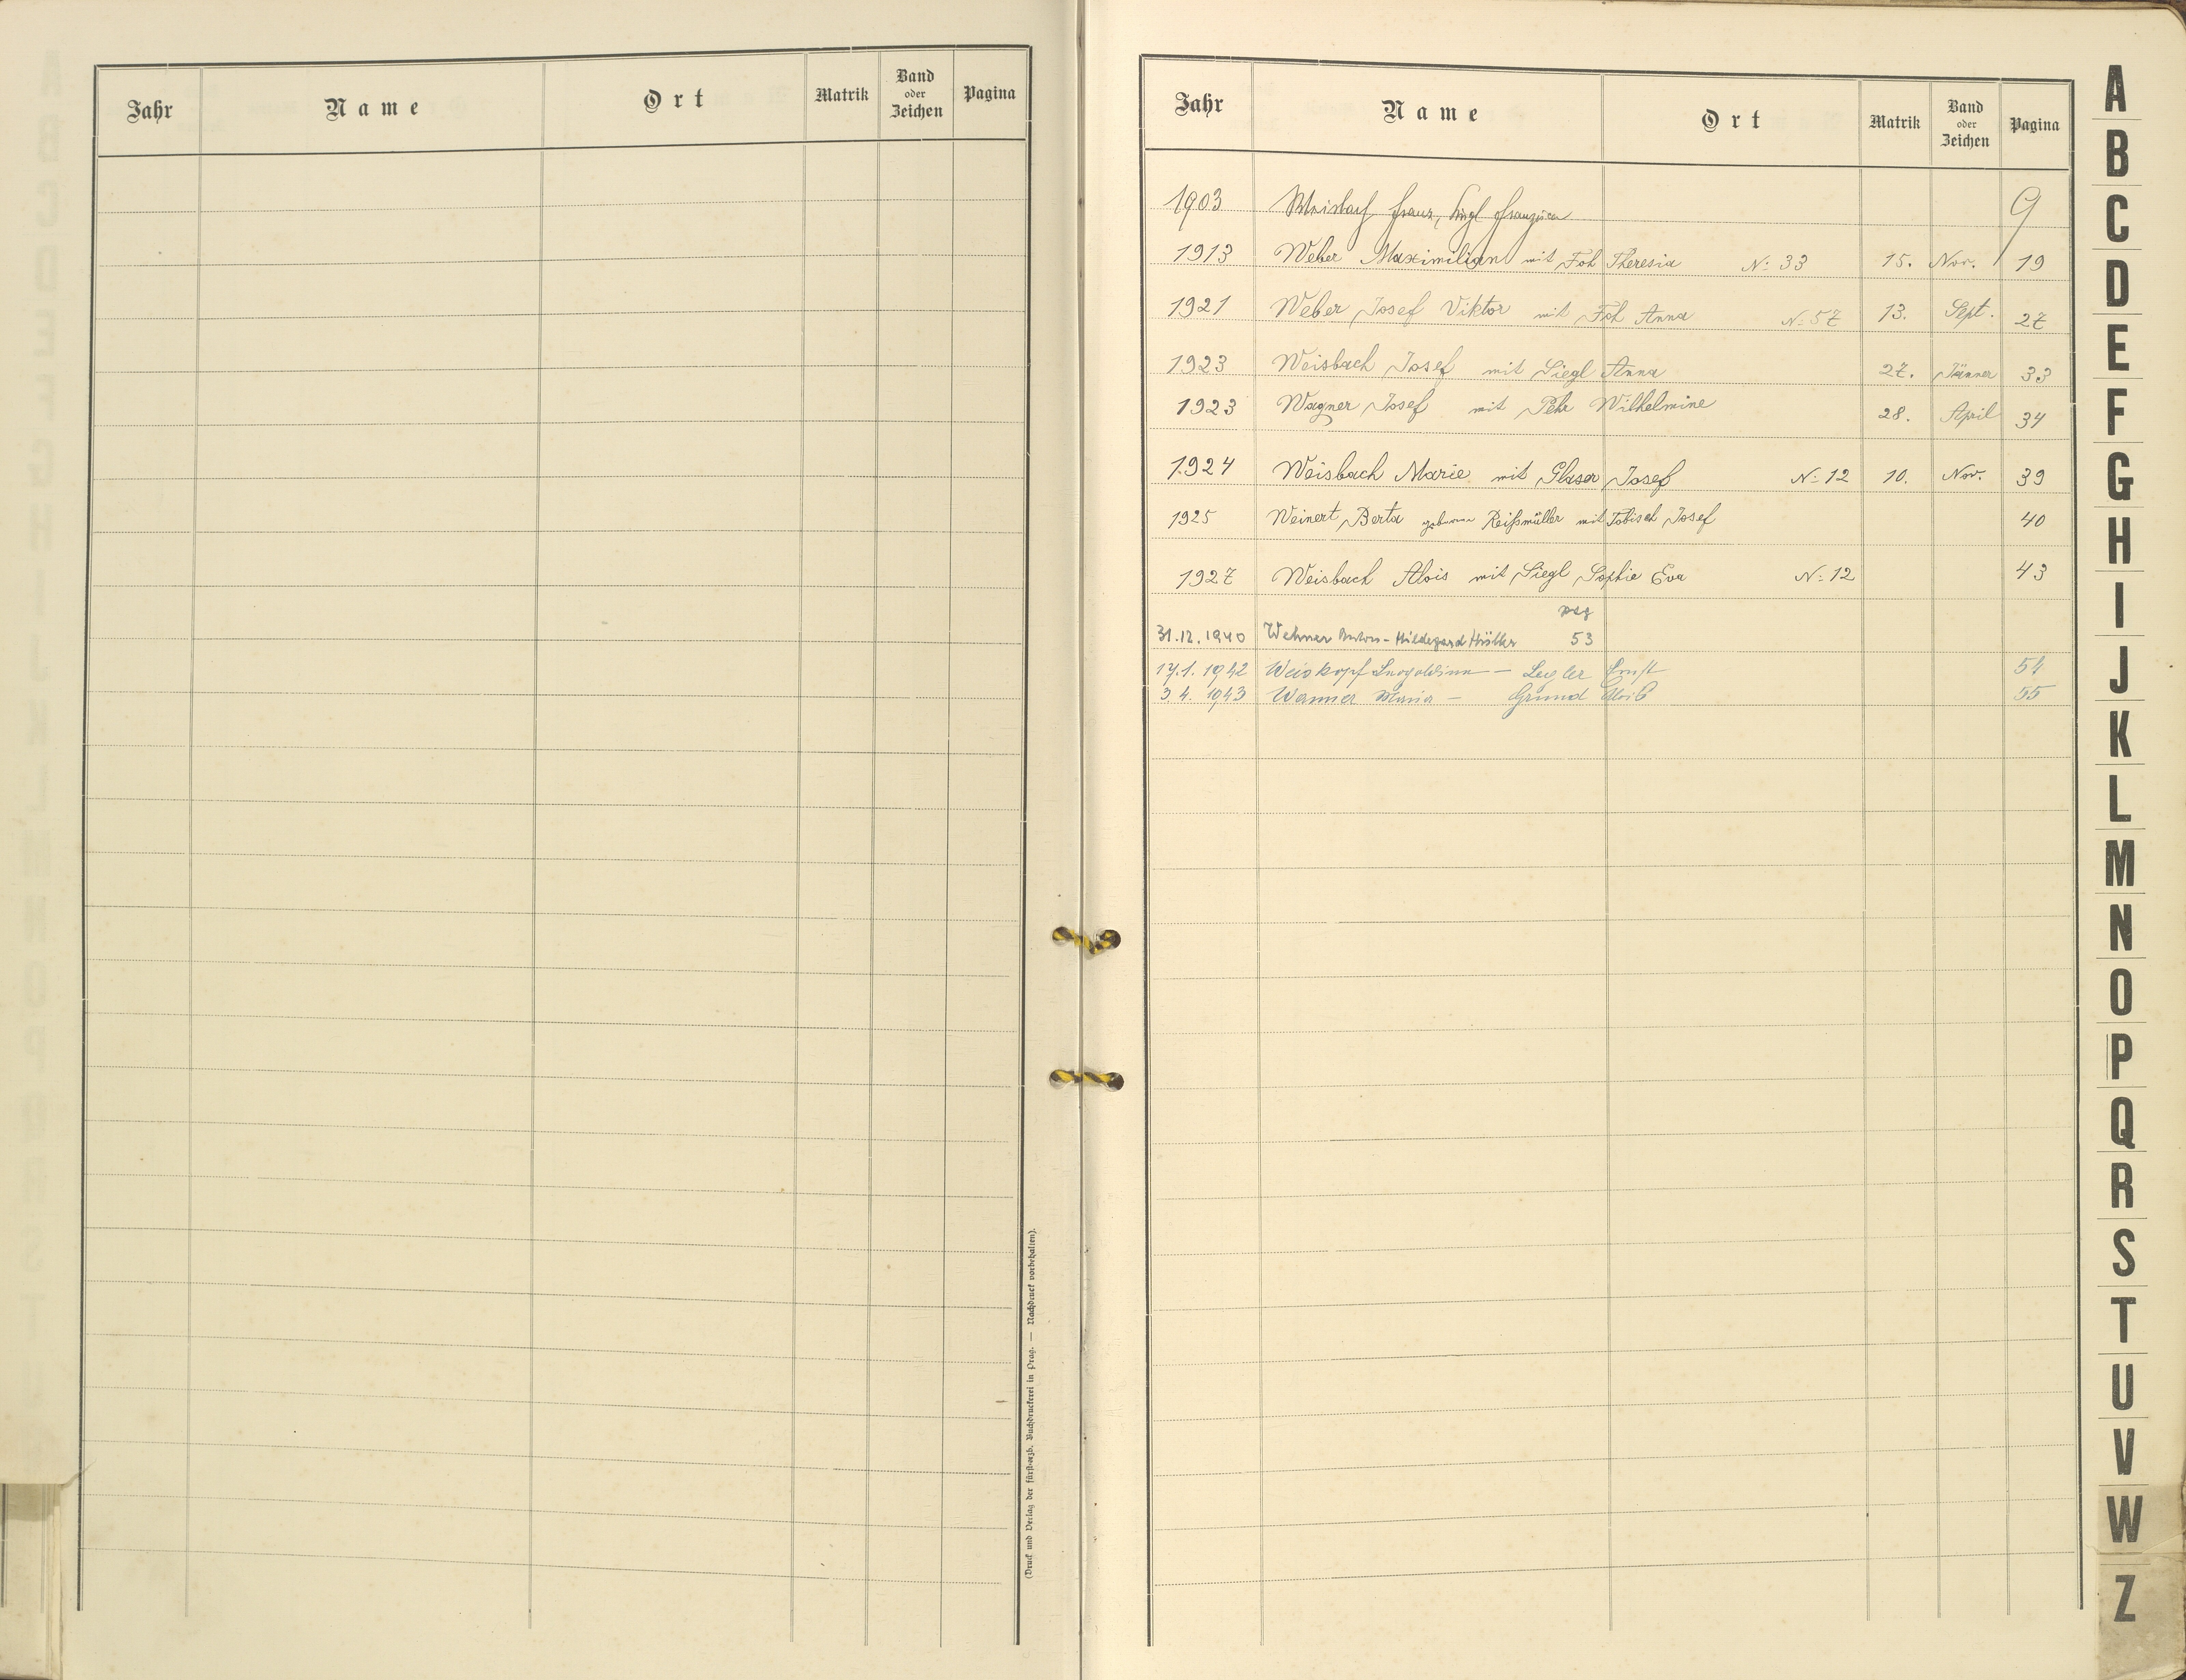 Jahr Name Ort Matrik Band oder Zeichen Pagina
(Druck und Verlag der fürst-erzb. Buchdruckerei in Prag. — Nachdruck vorbehalten).
Jahr Name Ort Matrik Band oder Zeichen Pagina
1903 Weisbach Franz, Siegl Franziska 9
1913 Weber Maximilian mit Foh Theresia N: 33 15. Nov. 19
1921 Weber Josef Viktor mit Foh Anna N: 57 13. Sept. 27
1923 Weisbach Josef mit Siegl Anna 27. Jänner 33
1923 Wagner Josef mit Pehr Wilhelmine 28. April 34
1924 Weisbach Marie mit Glaser Josef N: 12 10. Nov. 39
1925 Weinert Berta geborene Reißmüller mit Tobisch Josef 40
1927 Weisbach Alois mit Siegl Sophie Eva N: 12 43
pag
31.12.1940 Wehner Anton - Hildegard 53
17.1.1942 Weiskopf Leopoldine — Legler Ernst 54
3.4.1943 Wanner Maria — Grund Alois 55
A
B
C
D
E
F
G
H
I
J
K
L
M
N
O
P
Q
R
S
T
U
V
W
Z